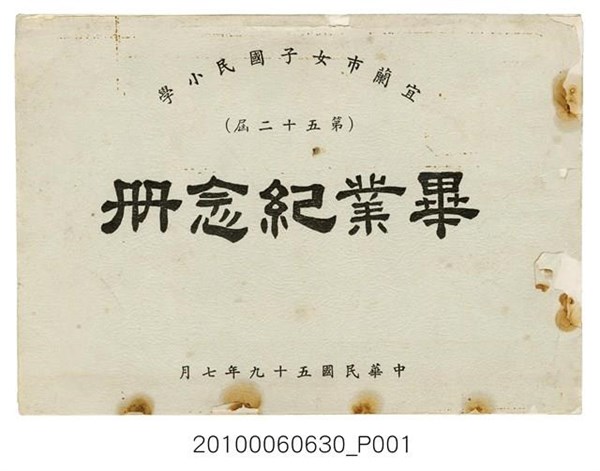 宜蘭市女子國民小學
(第五十二屆)
畢業紀念册
中華民國五十九年七月
20100060630_P001